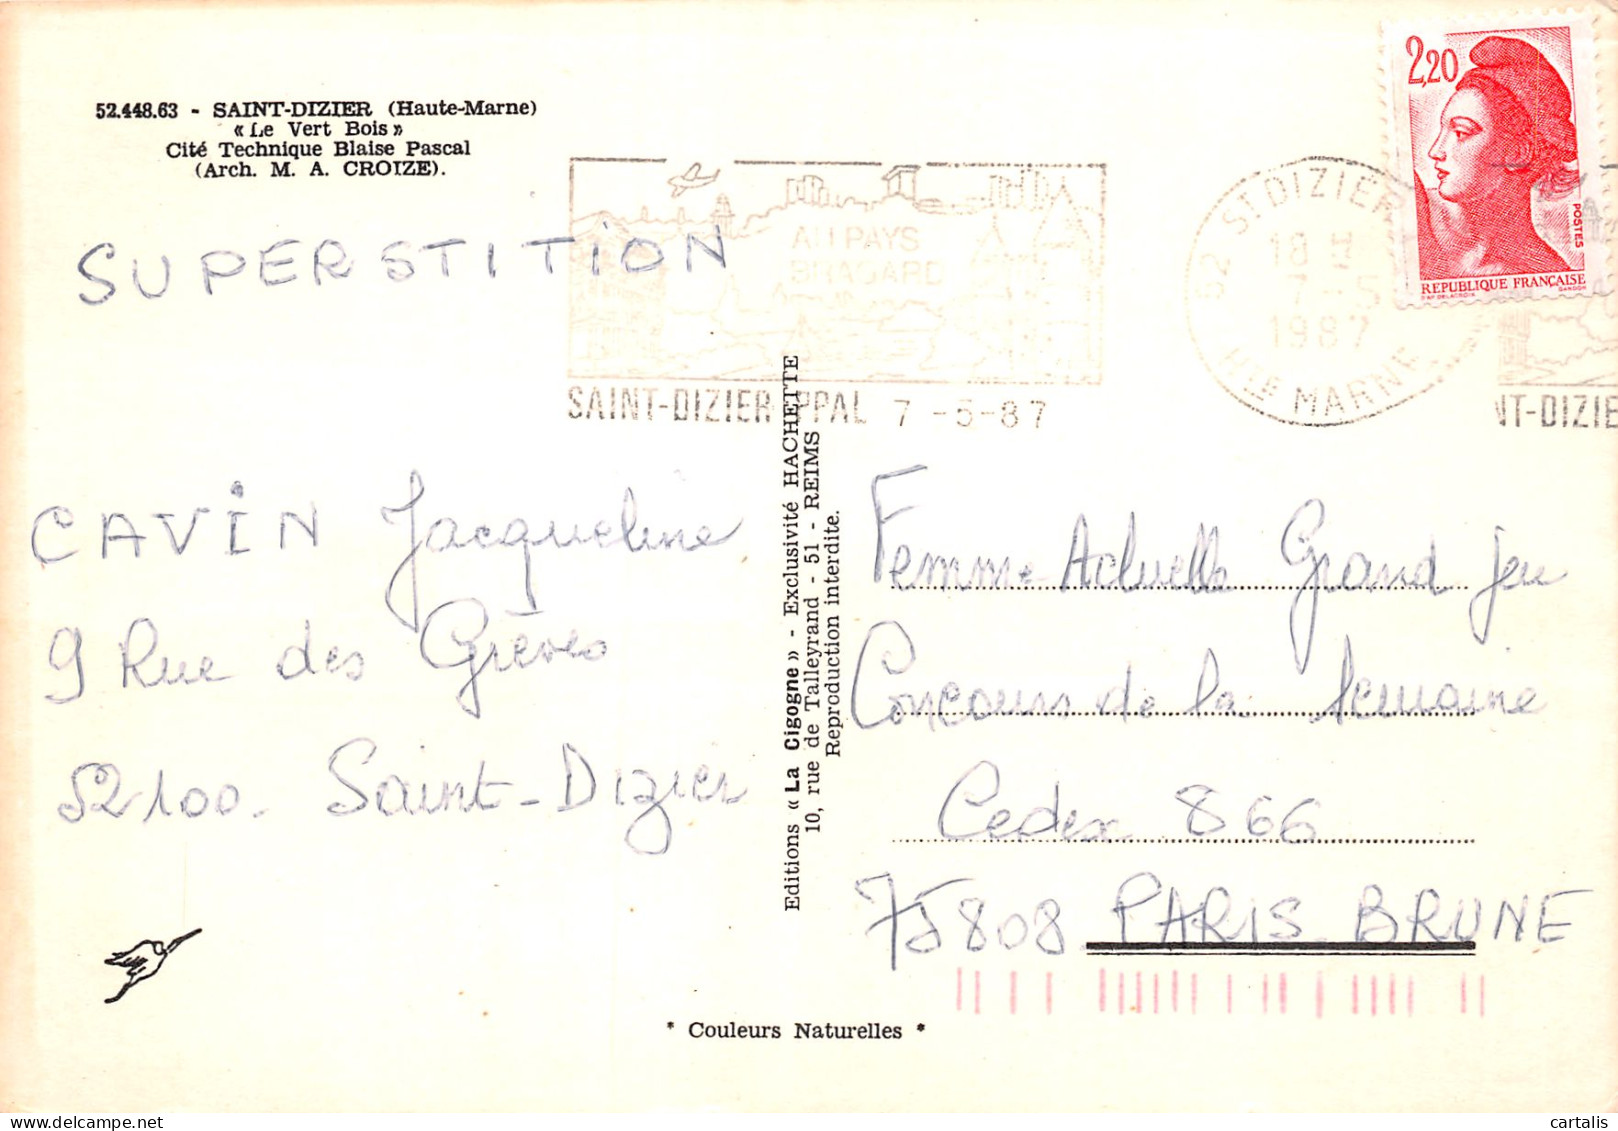 52.448.63 - SAINT-DIZIER (Haute-Marne)
« Le Vert Bois »
Cité Technique Blaise Pascal
(Arch. M. A. CROIZE).
SUPERSTITION
AU PAYS
BRAGARD
SAINT-DIZIER PPAL 7 -5-87
52 ST DIZIER
18 H
7 - 5
1987
HTE MARNE
2,20
POSTES
REPUBLIQUE FRANÇAISE
D'AP DELACROIX GANDON
NT-DIZIE
CAVIN Jacqueline
9 Rue des Grèves
52100. Saint-Dizier
Editions « La Cigogne » - Exclusivité HACHETTE
10, rue de Talleyrand - 51 - REIMS
Reproduction interdite.
Femme Actuelle Grand jeu
Concours de la semaine
Cedex 866
75808 PARIS BRUNE
* Couleurs Naturelles *
cartalis